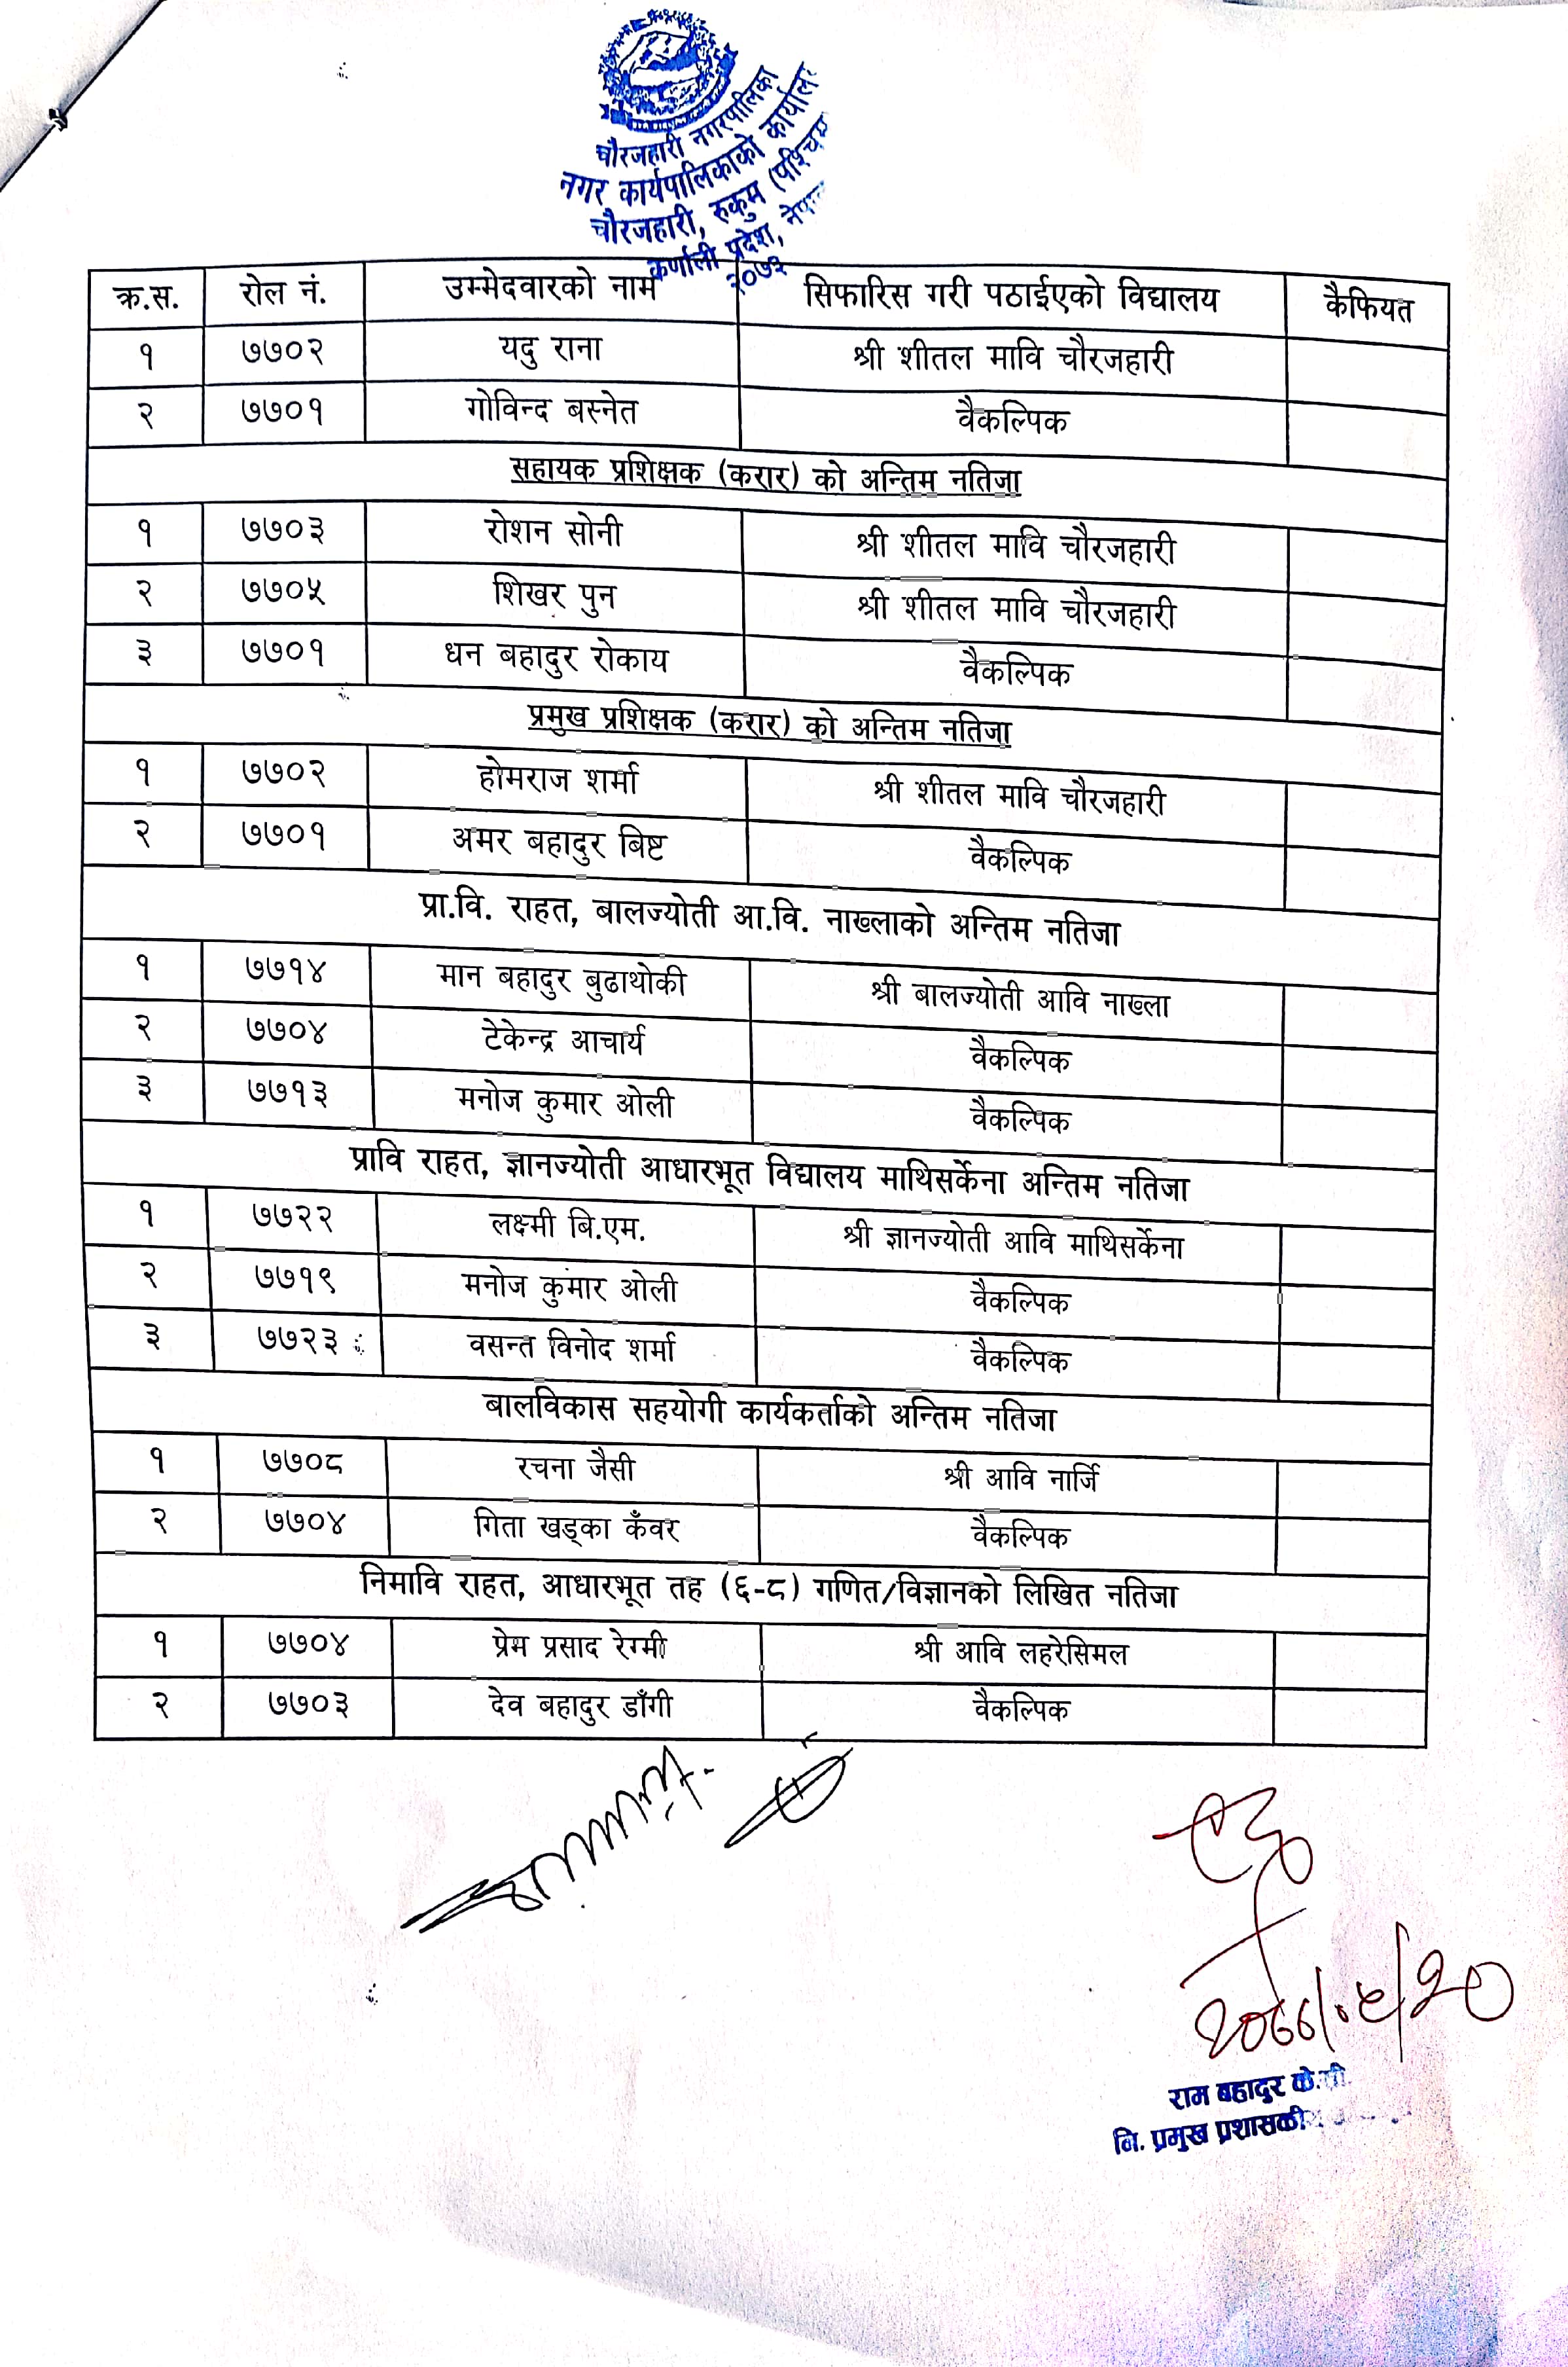 चौरजहारी नगरपालिका
नगर कार्यपालिकाको कार्यालय
चौरजहारी, रुकुम (पश्चिम
कर्णाली प्रदेश, नेपाल
२०७३
क्र.स. रोल नं. उम्मेदवारको नाम सिफारिस गरी पठाईएको विद्यालय कैफियत
१ ७७०२ यदु राना श्री शीतल मावि चौरजहारी
२ ७७०१ गोविन्द बस्नेत वैकल्पिक
सहायक प्रशिक्षक (करार) को अन्तिम नतिजा
१ ७७०३ रोशन सोनी श्री शीतल मावि चौरजहारी
२ ७७०५ शिखर पुन श्री शीतल मावि चौरजहारी
३ ७७०१ धन बहादुर रोकाय वैकल्पिक
प्रमुख प्रशिक्षक (करार) को अन्तिम नतिजा
१ ७७०२ होमराज शर्मा श्री शीतल मावि चौरजहारी
२ ७७०१ अमर बहादुर बिष्ट वैकल्पिक
प्रा.वि. राहत, बालज्योती आ.वि. नाख्लाको अन्तिम नतिजा
१ ७७१४ मान बहादुर बुढाथोकी श्री बालज्योती आवि नाख्ला
२ ७७०४ टेकेन्द्र आचार्य वैकल्पिक
३ ७७१३ मनोज कुमार ओली वैकल्पिक
प्रावि राहत, ज्ञानज्योती आधारभूत विद्यालय माथिसर्केना अन्तिम नतिजा
१ ७७२२ लक्ष्मी बि.एम. श्री ज्ञानज्योती आवि माथिसर्केना
२ ७७१९ मनोज कुमार ओली वैकल्पिक
३ ७७२३ वसन्त विनोद शर्मा वैकल्पिक
बालविकास सहयोगी कार्यकर्ताको अन्तिम नतिजा
१ ७७०८ रचना जैसी श्री आवि नार्जि
२ ७७०४ गिता खड्का कँवर वैकल्पिक
निमावि राहत, आधारभूत तह (६-८) गणित/विज्ञानको लिखित नतिजा
१ ७७०४ प्रेम प्रसाद रेग्मी श्री आवि लहरेसिमल
२ ७७०३ देव बहादुर डाँगी वैकल्पिक
राम बहादुर के.सी.
नि. प्रमुख प्रशासकी